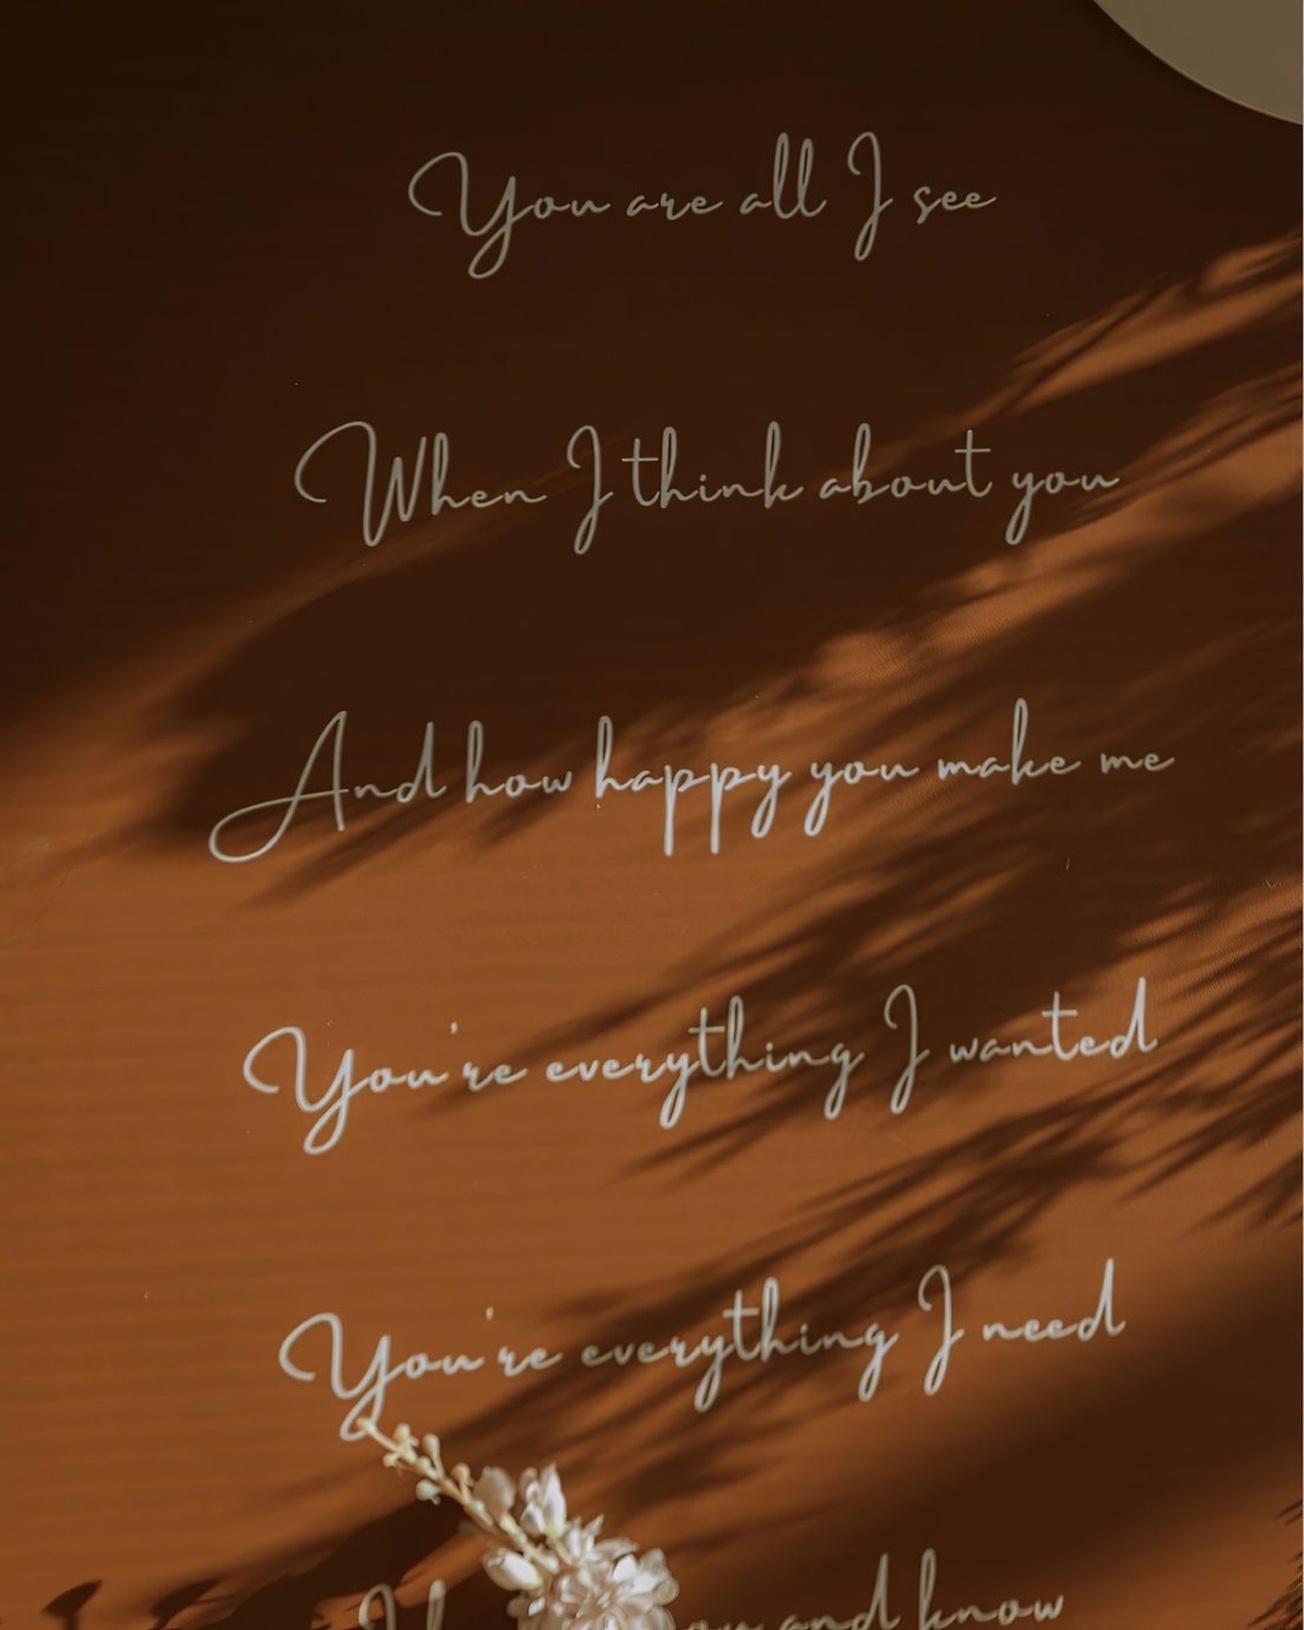 You are all I see
When I think about you
And how happy you make me
You're everything I wanted
You're everything I need
and know